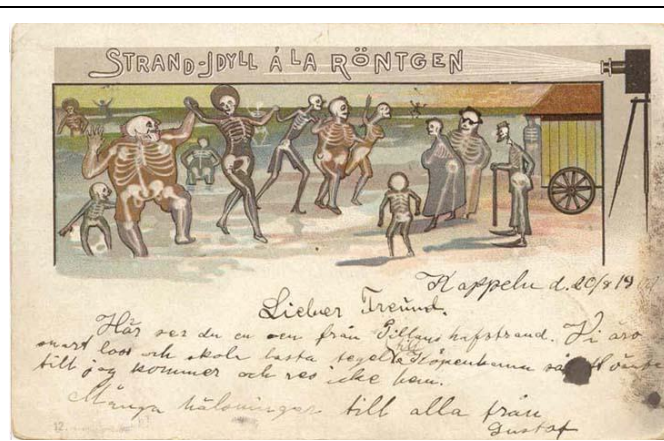 STRAND-IDYLL Á LA RÖNTGEN
Kappeln d. 20/8 19
Lieber Freund.
Här ser du en från Pillaus hafstrand. Vi äro
snart loss och skola lasta till Köpenhamn så
till jag kommer och res icke hem.
Många hälsningar till alla från
Gustaf
12.